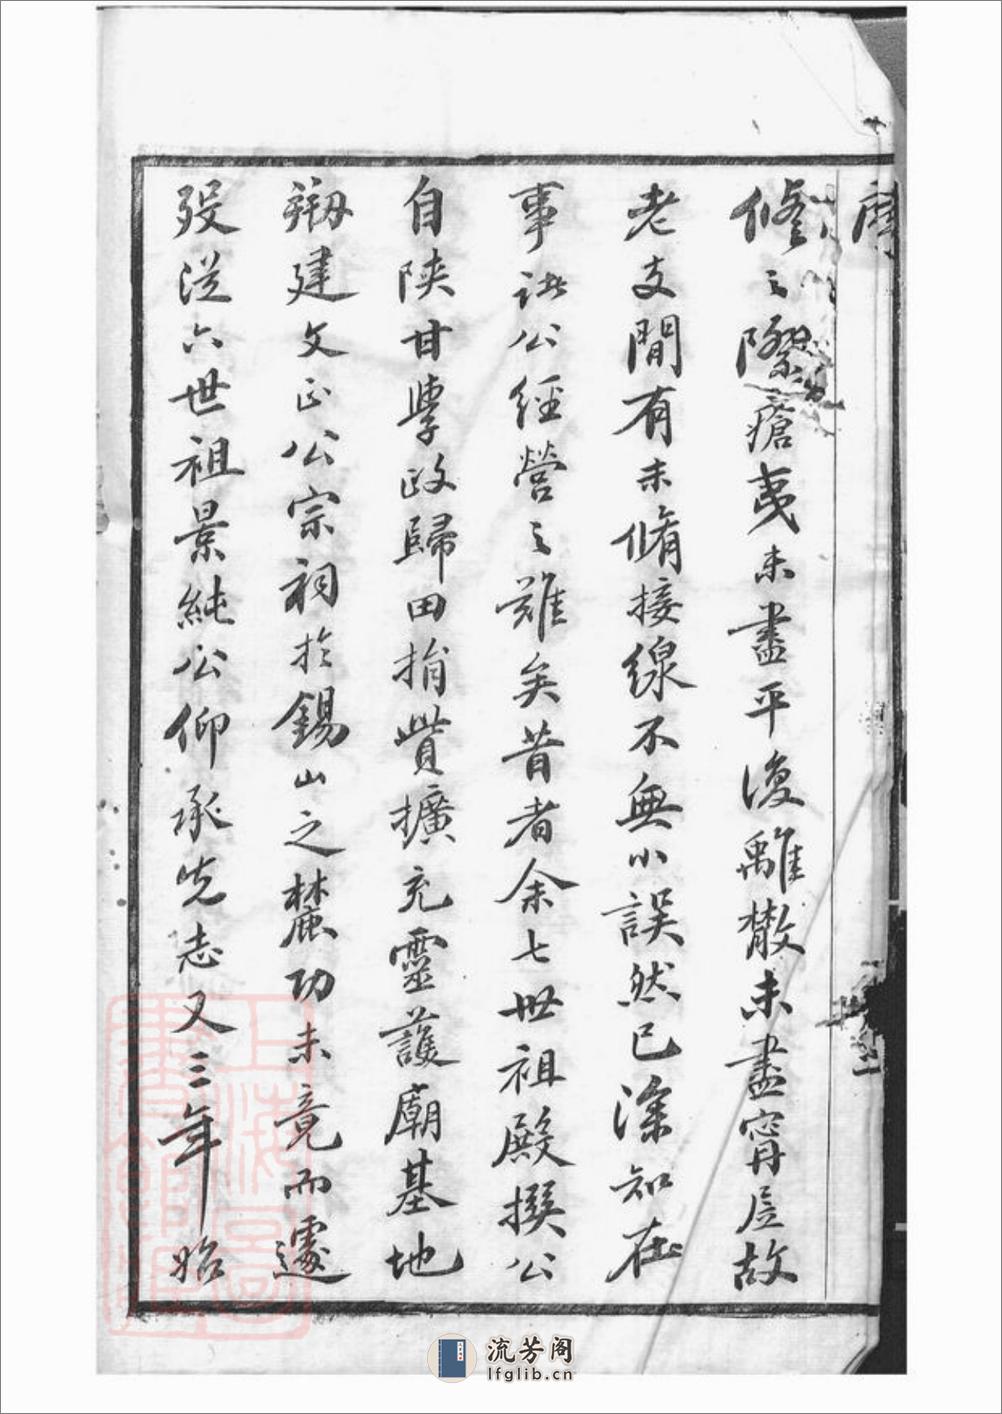 修之際瘡夷未盡平復離散未盡甯居故
老支間有未脩接線不無小誤然已深知在
事諸公經營之難矣昔者余七世祖殿撰公
自陝甘學政歸田捐貲擴充靈護廟基地
剏建文正公宗祠於錫山之麓功未竟而遽
歿從六世祖景純公仰承先志又三年始
上海圖書館藏
流芳阁
lfglib.cn